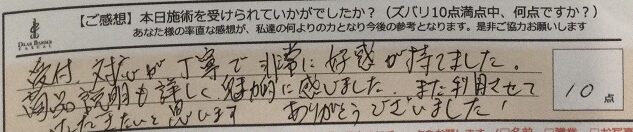 【ご感想】本日施術を受けられていかがでしたか？（ズバリ10点満点中、何点ですか？）
あなた様の率直な感想が、私達の何よりの力となり今後の参考となります。是非ご協力お願いします
受付、対応が丁寧で非常に好感が持てました。
商品説明も詳しく、魅力的に感じました。また利用させて
いただきたいと思います ありがとうございました！
10点